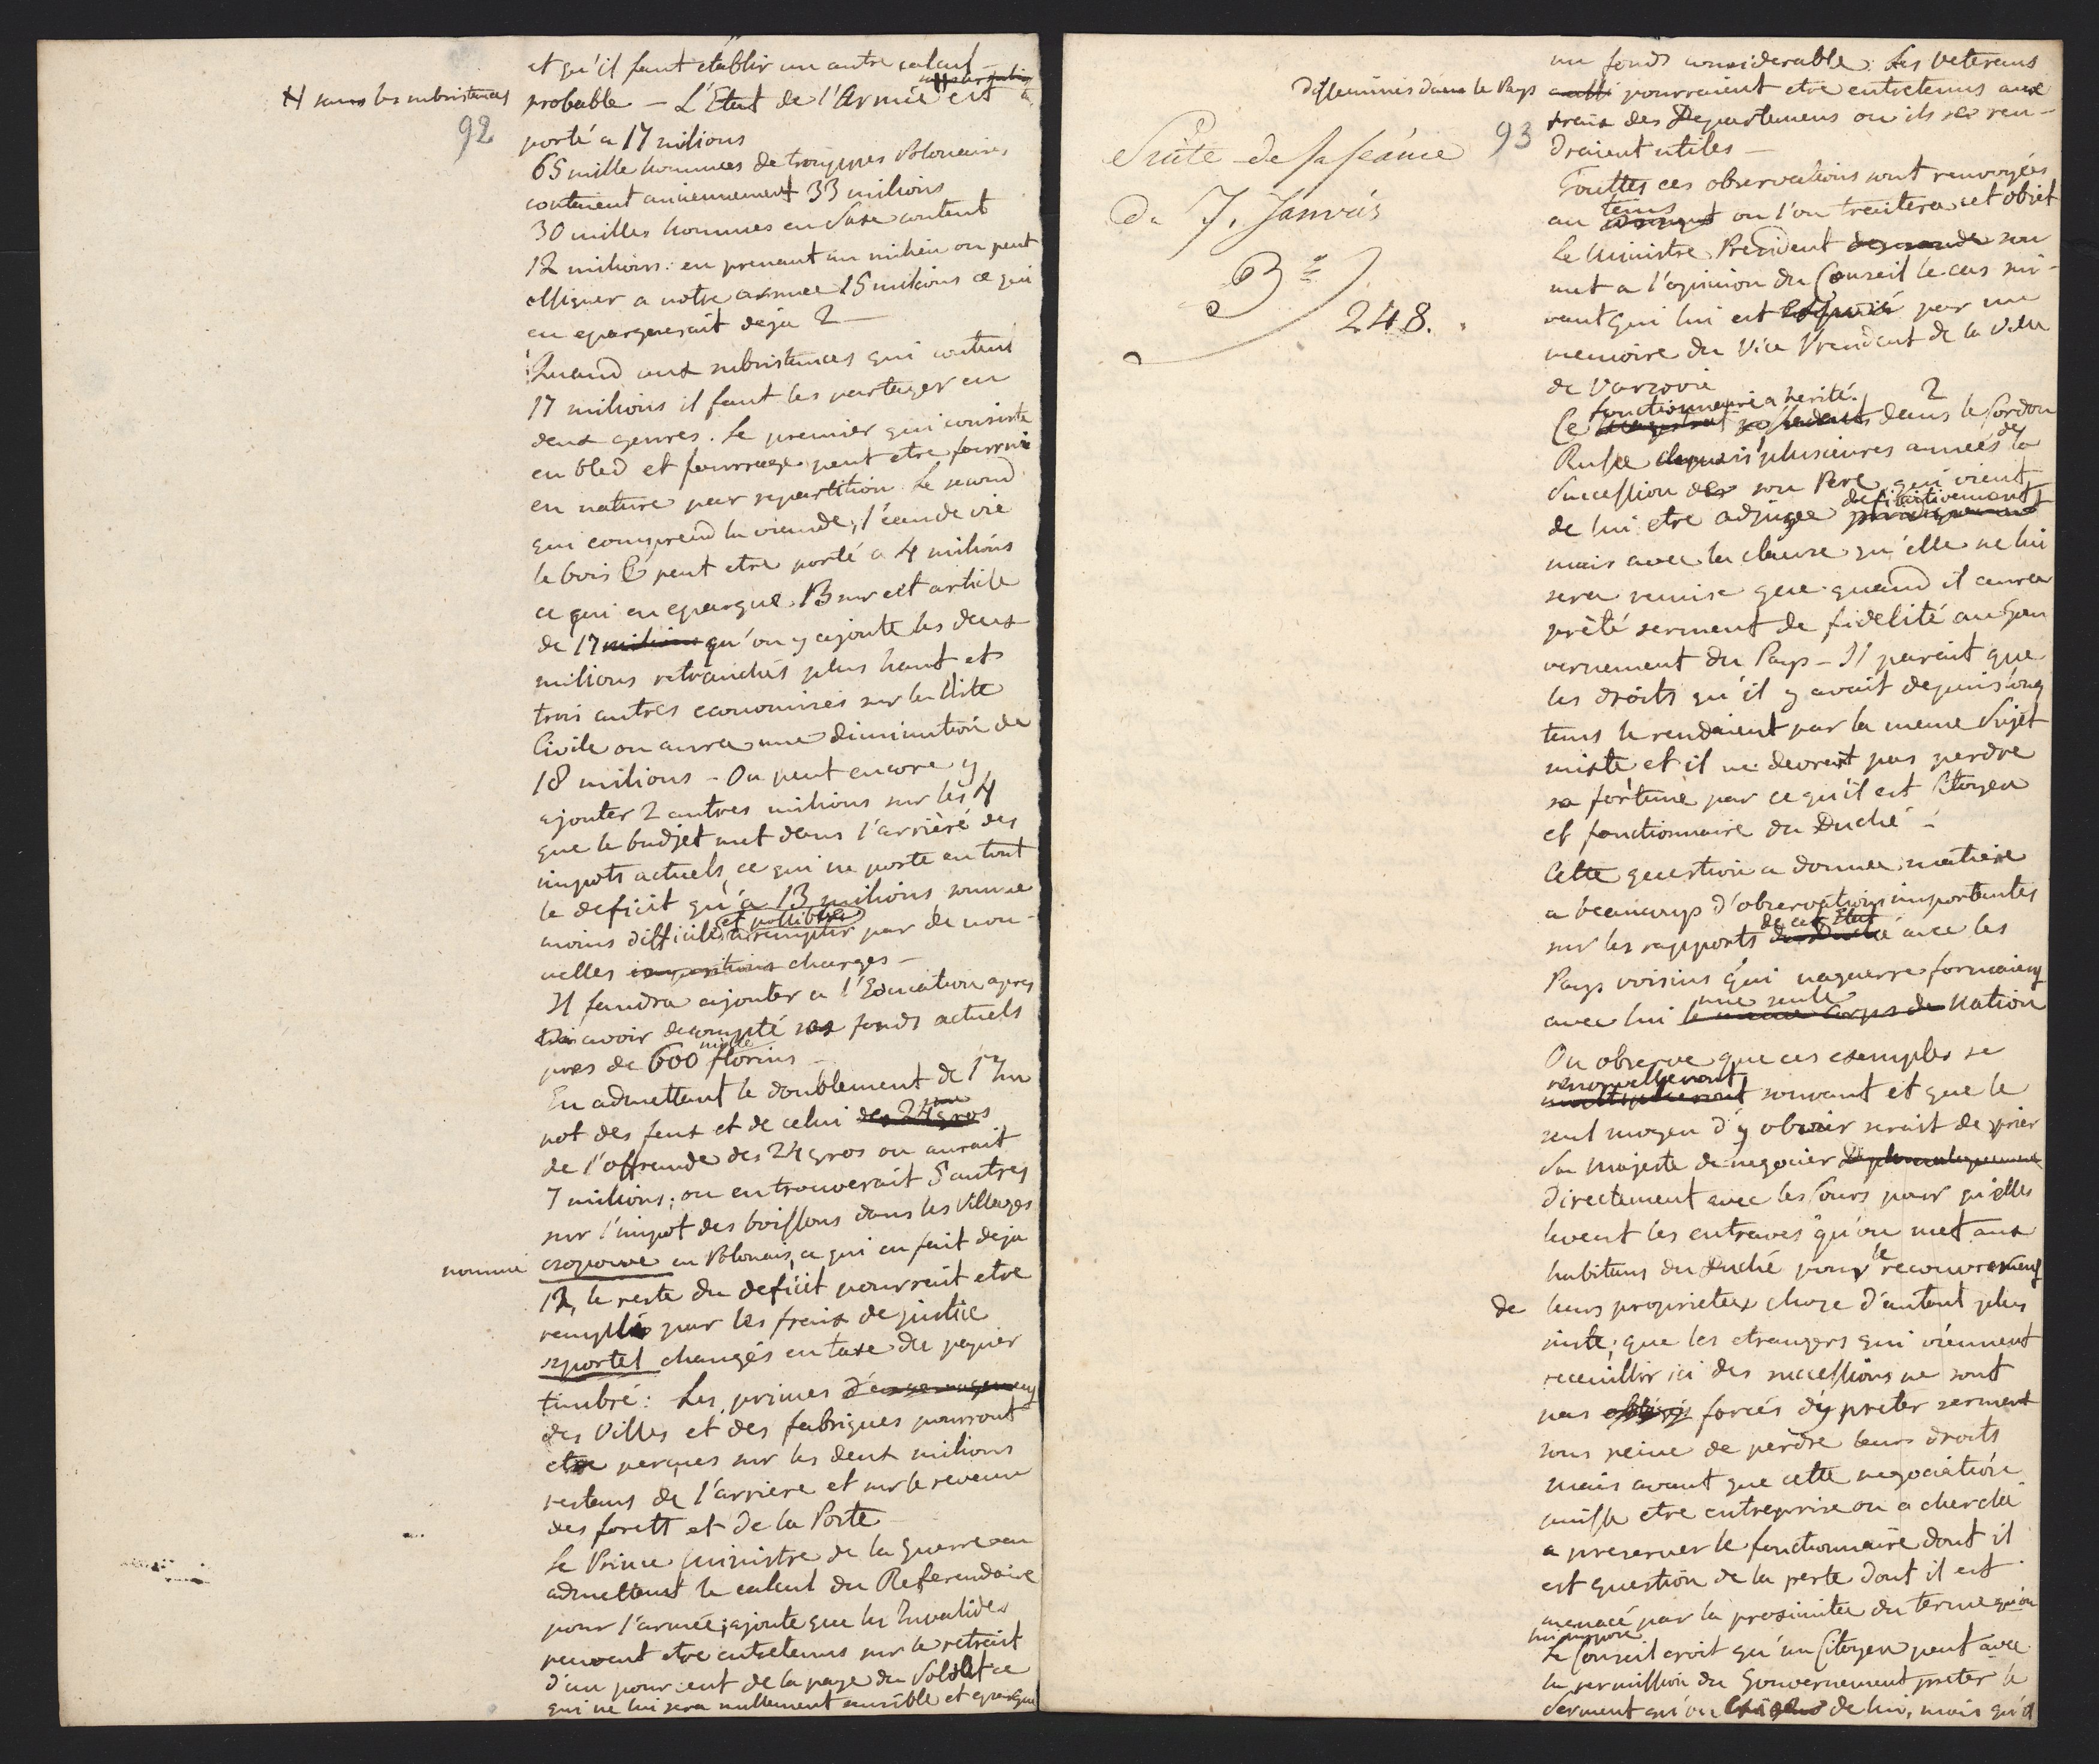 et qu'il faut etablir un autre calcul
H sans les subsistences
probable – L'Etat de l'Armée H est
92
porté a 17 milions
65 mille hommes de trouppes Polonaises
coutaient anciennement 33 milions
30 milles hommes en Saxe coutent
12 milions: en prenant un milieu on peut
assigner a notre armee 15 milions ce qui
en epargnerait deja 2 –
Quand aux subsistances qui coutent
17 milions il faut les partager en
deux genres. Le premier qui consiste
en bled et fourrage peut etre fourni
en nature par repartition. Le second
qui comprend la viande, l'eau de vie
le bois & peut etre porté a 4 milions
ce qui en epargne 13 sur cet article
de 17 milions qu'on y ajoute les deux
milions retranchés plus haut et
trois autres economisés sur la liste
Civile on aura une diminution de
18 milions – On peut encore y
ajouter 2 autres milions sur les 4
que le budjet met dans l'arriéré des
impots actuels, ce qui ne porte en tout
le deficit qu'a 13 milions somme
et possible
moins difficile a remplir par de nou-
velles impositions charges –
Il faudra ajouter a l'Education apres
avoir decompté ses fonds actuels
mille
pres de 600 florins –
En admettant le doublement de l'Im
pot des feux et de celui des 24 gros
de l'offrande des 24 gros on aurait
7 milions; on en trouverait 5 autres
sur l'impot des boissons dans les villages
nommé czopowe en Polonais, ce qui en fait deja
12, le reste du deficit pourrait etre
remplis par les frais de justice
sportel changés en taxe du papier
timbré: Les primes d'encouragement
des Villes et des fabriques pourront
etre perçues sur les deux milions
restans de l'arriere et sur le revenu
des forets et de la Poste
Le Prince Ministre de la guerre en
admettant le calcul du Referendaire
pour l'armée; ajoute que les Invalides
peuvent etre entretenus sur le retrait
d'un pour cent de la paye du Soldat ce
qui ne lui sera nullement sensible et epargne
Suite de la seance
du 7. Janvier
B
248.
93
un fonds considerable. Les veterans
disseminés dans le Pays
aussi pourraient etre entretenus aux
frais des Departemens ou ils se ren-
draient utiles –
Touttes ces observations sont renvoyées
tems
au moment ou l'on traitera cet objet
Le Ministre President demande sou
met a l'opinion du Conseil le cas sui-
vant qui lui est par un
memoire du Vice President de la Ville
de Varsovie
fonctionnaire a herité. 2
Ce dans le Cordon
de
Russe depuis plusieures années la
succession de son Pere qui vient
definitivement
de lui etre adjugée juridiquement
mais avec la clause qu'elle ne lui
sera remise que quand il aura
prêté serment de fidelité au Gou
vernement du Pays – Il parait que
les droits qu'il y avait depuis long
tems le rendaient par la meme Sujet
mixte et il ne devrait pas perdre
sa fortune par ce qu'il est Citoyen
et fonctionnaire du Duché –
Cette question a donnée matiere
a beaucoup d'observations importantes
de cet Etat
sur les rapports du Duché avec les
Pays voisins qui naguerre formaient
une seule
avec lui le meme Corps de Nation
On observe que ces exemples se
renouvelleront
multiplieront souvant et que le
seul moyen d'y obvier serait de prier
Sa Majeste de negocier Diplomatiquement
directement avec les Cours pour qu'elles
levent les entraves qu'on met aux
le
habitans du Duché pour recouvrement
de leurs proprietees chose d'autant plus
juste, que les etrangers qui viennent
receuillir ici des successions ne sont
pas obligés forcés d'y preter serment
sous peine de perdre leurs droits
Mais avant que cette negociation
puisse etre entreprise on a cherché
a preserver le fonctionnaire dont il
est question de la perte dont il est
menacé par la proximitée du terme qu'on
lui impose
Le Conseil croit qu'un Citoyen peut avec
la permission du Gouvernement preter le
Serment qu'on de lui, mais qu'il